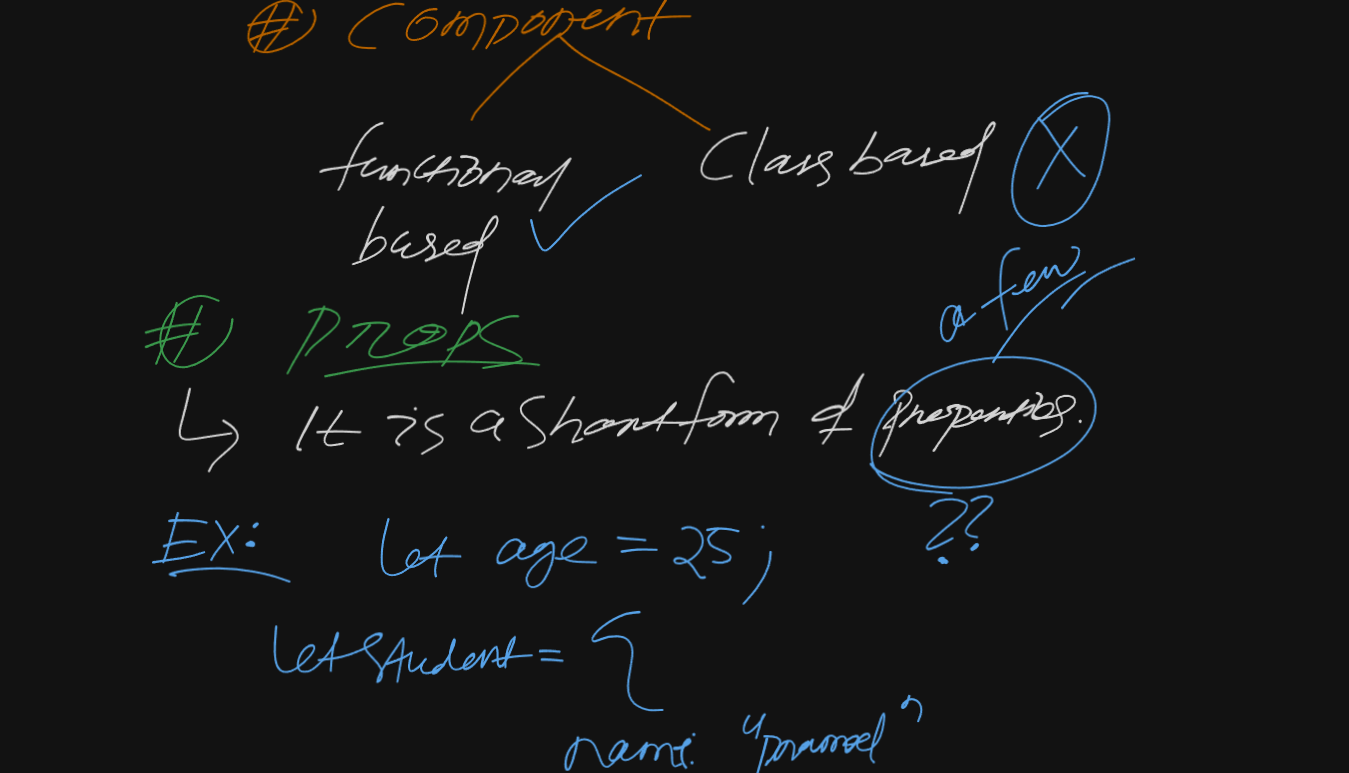 # Component
functional Class based X
based ✓
a few
# Props
↳ It is a Short form of properties.
??
Ex: let age = 25;
let student = {
name: "pramod"